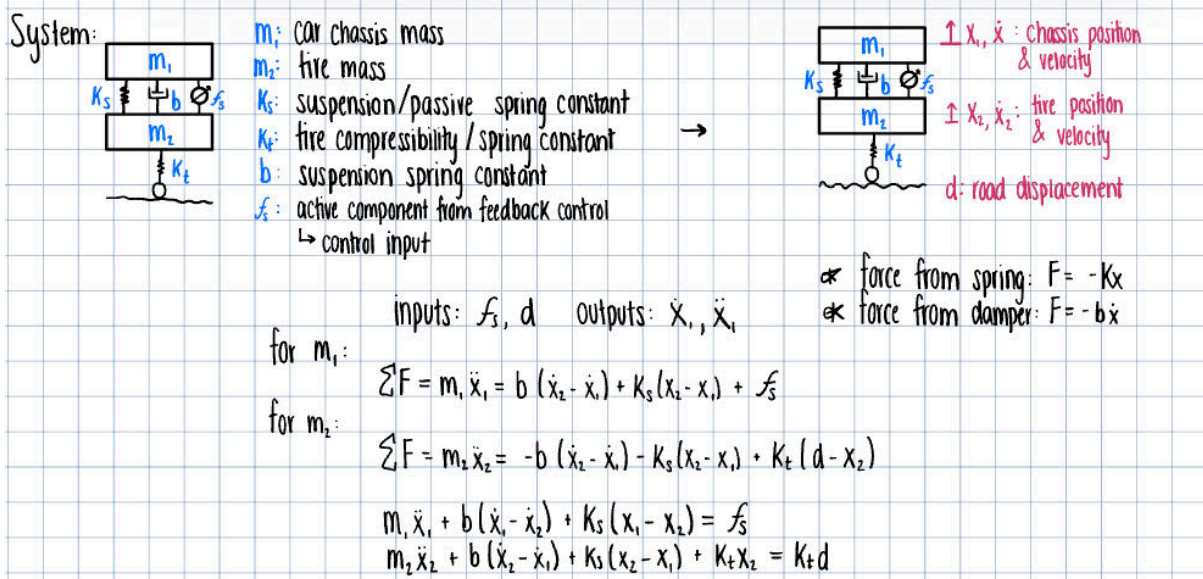 System:
m₁
Kₛ b fₛ
m₂
Kₜ
m₁: car chassis mass
m₂: tire mass
Kₛ: suspension/passive spring constant
Kₜ: tire compressibility / spring constant
b: suspension spring constant
fₛ: active component from feedback control
↳ control input
→
m₁
Kₛ b fₛ
m₂
Kₜ
↥ x₁, ẋ : chassis position
& velocity
↥ x₂, ẋ₂: tire position
& velocity
d: road displacement
* force from spring: F = -Kx
* force from damper: F = -bẋ
inputs: fₛ, d outputs: ẋ₁, ẍ₁
for m₁:
ΣF = m₁ẍ₁ = b(ẋ₂ - ẋ₁) + Kₛ(x₂ - x₁) + fₛ
for m₂:
ΣF = m₂ẍ₂ = -b(ẋ₂ - ẋ₁) - Kₛ(x₂ - x₁) + Kₜ(d - x₂)
m₁ẍ₁ + b(ẋ₁ - ẋ₂) + Kₛ(x₁ - x₂) = fₛ
m₂ẍ₂ + b(ẋ₂ - ẋ₁) + Kₛ(x₂ - x₁) + Kₜx₂ = Kₜd